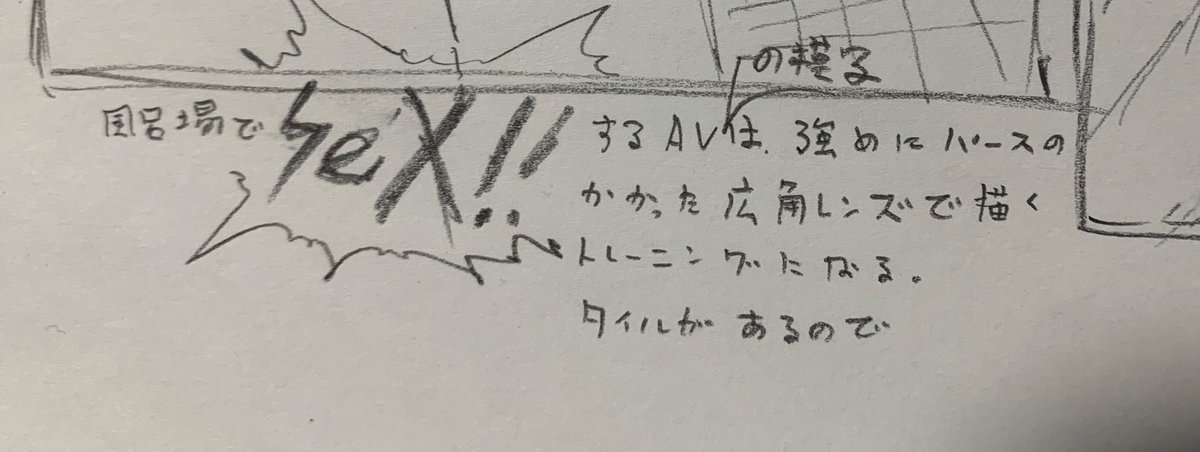 風呂場で SeX!! するAVの模写は、強めにパースの
かかった広角レンズで描く
トレーニングになる。
タイルがあるので